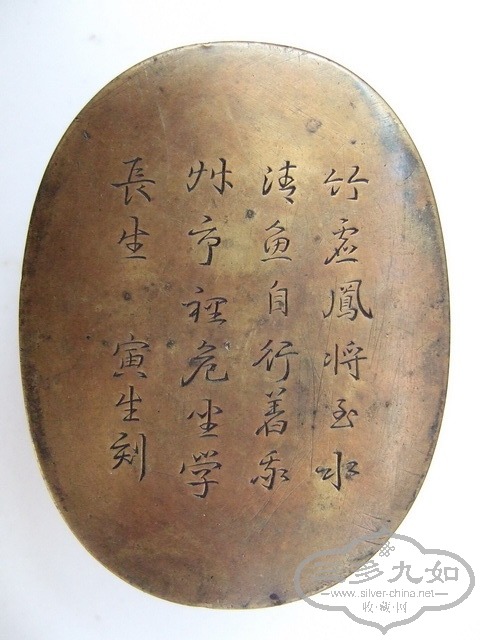 竹虚鳳将至水
清魚自行著我
艸亭裡危坐学
長生 寅生刻
多九如
www.silver-china.net
收·藏·网